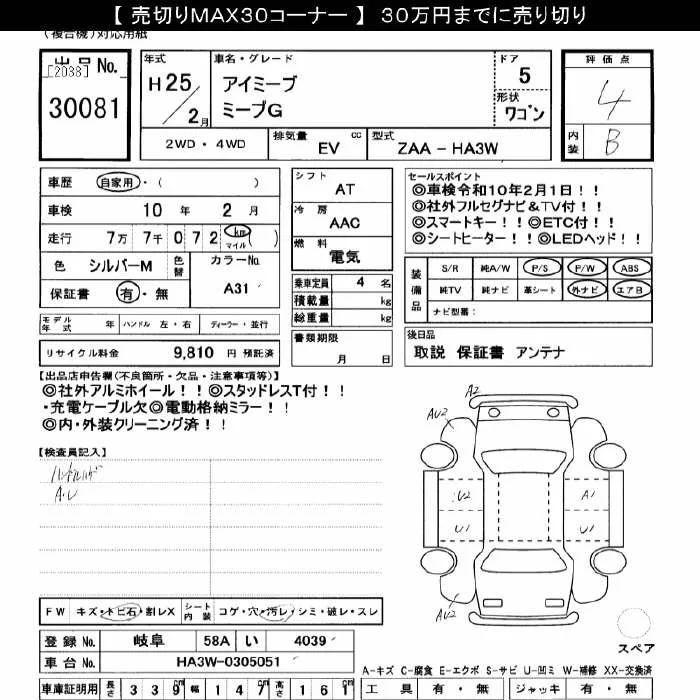 【 売切りMAX30コーナー 】 30万円までに売り切り
(複合機)対応用紙
出品No.
[2038]
30081
年式
H25/2月
車名・グレード
アイミーブ
ミーブG
ドア
5
形状
ワゴン
評価点
4
内装 B
2WD・4WD
排気量 cc
EV
型式
ZAA - HA3W
車歴 自家用・( )
車検 10年 2月
走行 7万 7千 0 7 2 km マイル ( )
色 シルバーM 色替
カラーNo.
A31
保証書 有・無
シフト
AT
冷房
AAC
燃料
電気
乗車定員 4 名
積載量 kg
総重量 kg
セールスポイント
◎車検令和10年2月1日!!
◎社外フルセグナビ&TV付!!
◎スマートキー!!◎ETC付!!
◎シートヒーター!!◎LEDヘッド!!
装備品
S/R 純A/W P/S P/W ABS
純TV 純ナビ 革シート 外ナビ エアB
ナビ型番:
モデル年式 年 ハンドル 左・右 ディーラー・並行
リサイクル料金 9,810 円 預託済
書類期限
月 日
後日品
取説 保証書 アンテナ
【出品店申告欄(不良箇所・欠品・注意事項等)】
◎社外アルミホイール!!◎スタッドレスT付!!
・充電ケーブル欠◎電動格納ミラー!!
◎内・外装クリーニング済!!
【検査員記入】
A・レ
A2
AU2
U2
A1
U1
U1
AU2
FW キズ・トビ石・割レX シート内装 コゲ・穴・汚レ・シミ・破レ・スレ
登録No. 岐阜 58A い 4039
車台No. HA3W-0305051
車庫証明用 長さ 3 3 9 cm 幅 1 4 7 cm 高さ 1 6 1 cm
スペア
A-キズ C-腐食 E-エクボ S-サビ U-凹ミ W-補修 XX-交換済
工具 有・無 ジャッキ 有・無